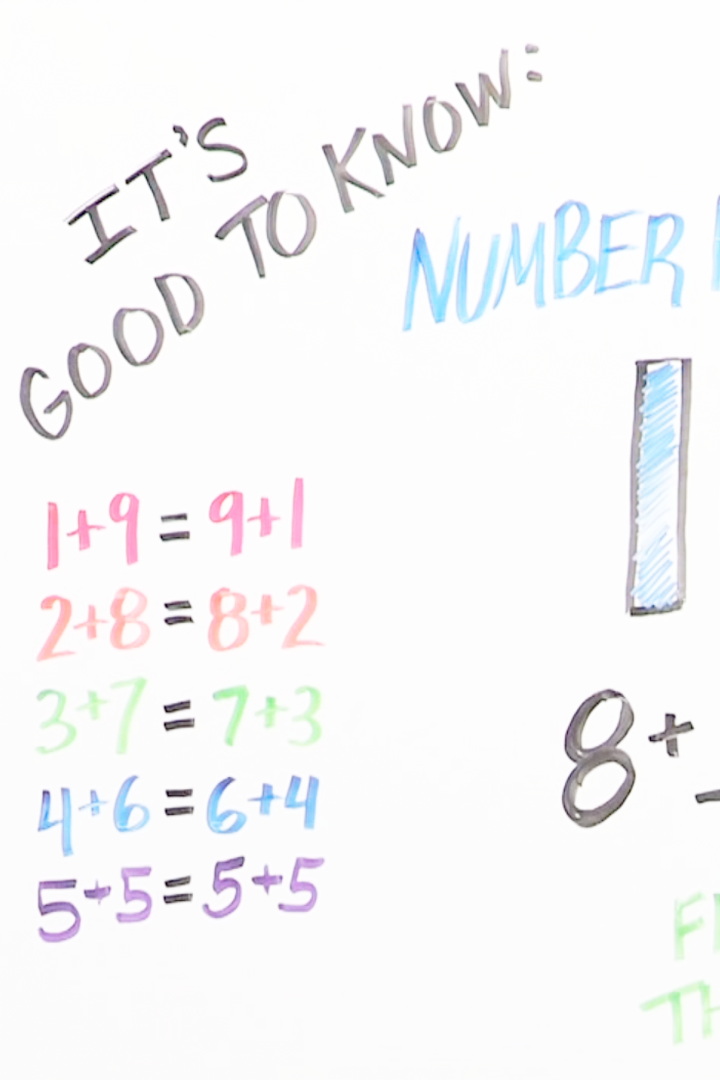 IT'S
GOOD TO KNOW:
1+9 = 9+1
2+8 = 8+2
3+7 = 7+3
4+6 = 6+4
5+5 = 5+5
NUMBER
8+